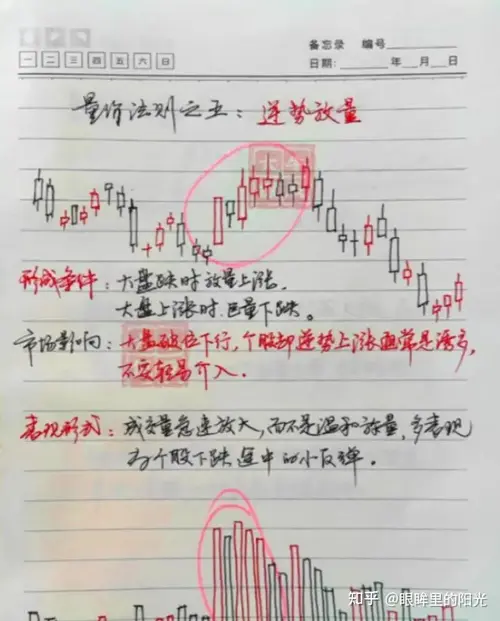 备忘录 编号
一 二 三 四 五 六 日
日期: 年 月 日
量价法则之五: 逆势放量
形成条件: 大盘跌时放量上涨,
大盘上涨时,巨量下跌。
市场影响: 大盘破位下行,个股却逆势上涨通常是诱多,
不要轻易介入.
表现形式: 成交量急速放大,而不是温和放量,多表现
为个股下跌途中的小反弹.
知乎 @眼眸里的阳光